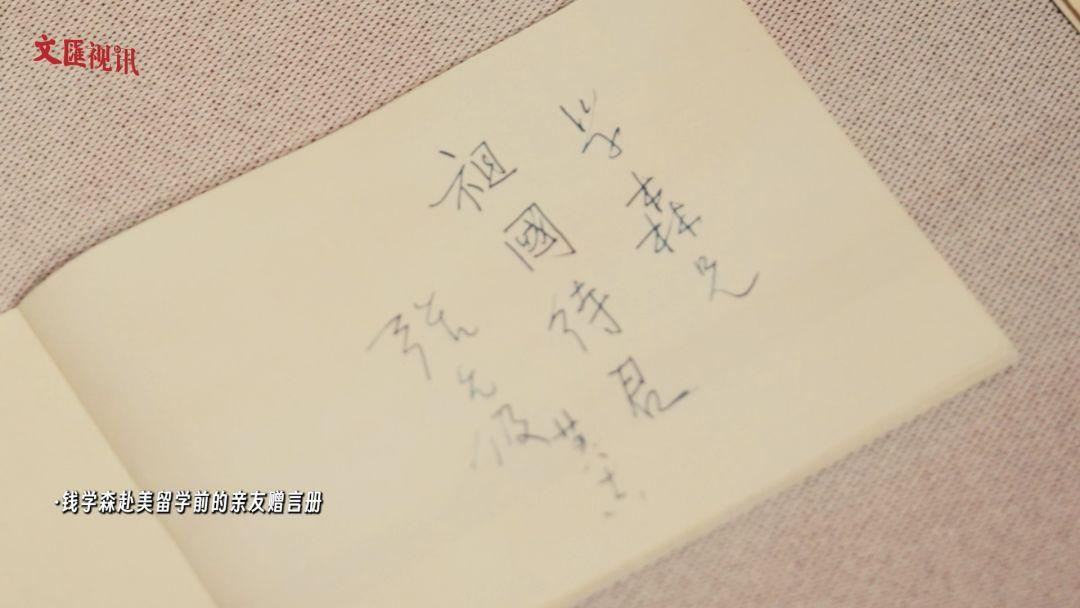 文匯视讯
学森兄
祖國待君
张
·钱学森赴美留学前的亲友赠言册